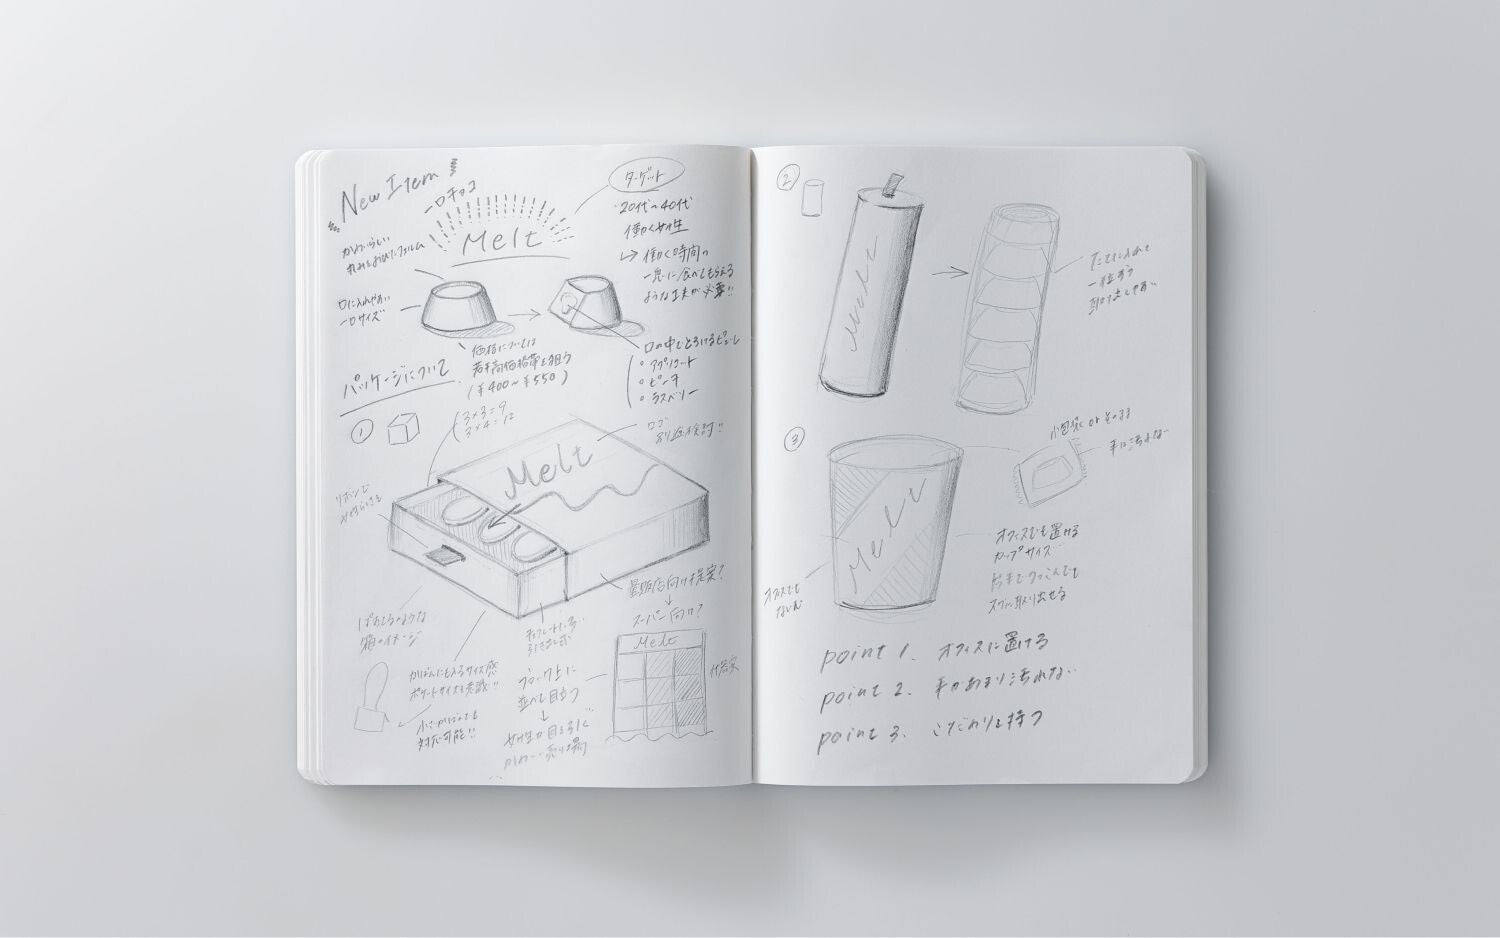 New Item
一口チョコ
Melt
ターゲット
20代〜40代
働く女性
↳ 働く時間の
一息に食べてもらえる
ような工夫が必要!!
かわいらしい
丸みをおびたフォルム
口に入れやすい
一口サイズ
価格については
若干高価格帯を狙う
(¥400〜¥550)
口の中でとろけるピューレ
アプリコット
ピーチ
ラズベリー
パッケージについて
①
3×3=9
3×4=12
ロゴ
別途検討!!
Melt
リボンで
量販店向け提案?
スーパー向け?
Melt
箱のイメージ
チョコレート
引き出し式
かばんにも入るサイズ感
ポケットサイズも意識!!
小さいかばんでも
対応可能!!
ブロック上に
並べて目立つ
女性の目を引く
かわいい売り場
②
Melt
たてに入れて
一粒ずつ
取り出しやすい
③
Melt
小包装 or そのまま
手に汚れない
オフィスでも置ける
カップサイズ
片手でつっこんでも
スグに取り出せる
オフィスでも
point 1. オフィスに置ける
point 2. 手があまり汚れない
point 3. こだわりを持つ